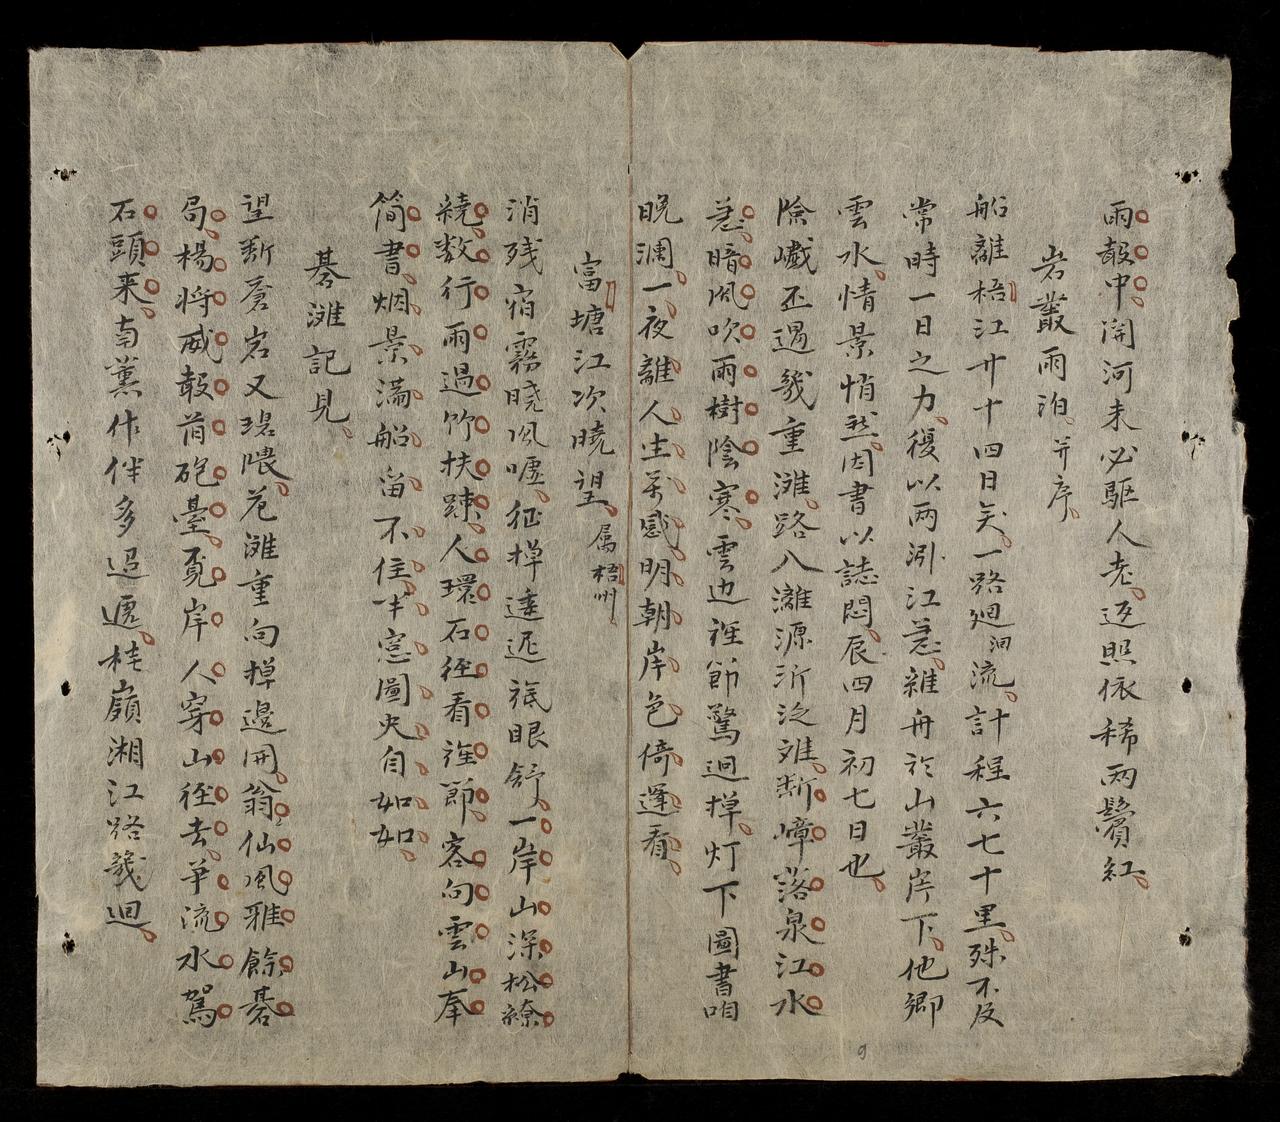 雨鼓中開河未必驅人老返照依稀两鬢紅
岩叢雨泊并序
船離梧江廾十四日矣一路廻洄流計程六七十里殊不及
常時一日之力復以两泐江急維舟於山叢岸下他鄉
雲水情景悄然因書以誌悶辰四月初七日也
險巇丕過幾重灘路入灕源泝泛难断嶂落泉江水
急暗風吹雨樹陰寒雲边旌節驚迴棹灯下圖書咱
晚瀾一夜離人生萬感明朝岸色倚蓬看
富塘江次曉望属梧州
消残宿霧曉風嘘征棹逶迟旅眼舒一岸山深松繚
繞数行雨過竹扶踈人環石徑看旌節客向雲山奉
简書烟景滿船畄不住半窓圖史自如如
碁灘記見
望断蒼岩又珺隈花灘重向棹邊開翁仙風雅餘碁
局楊将威鼓肯砲臺覓岸人穿山徑去平流水駕
石頭来南薰作伴多迢遞桂嶺湘江路幾迴